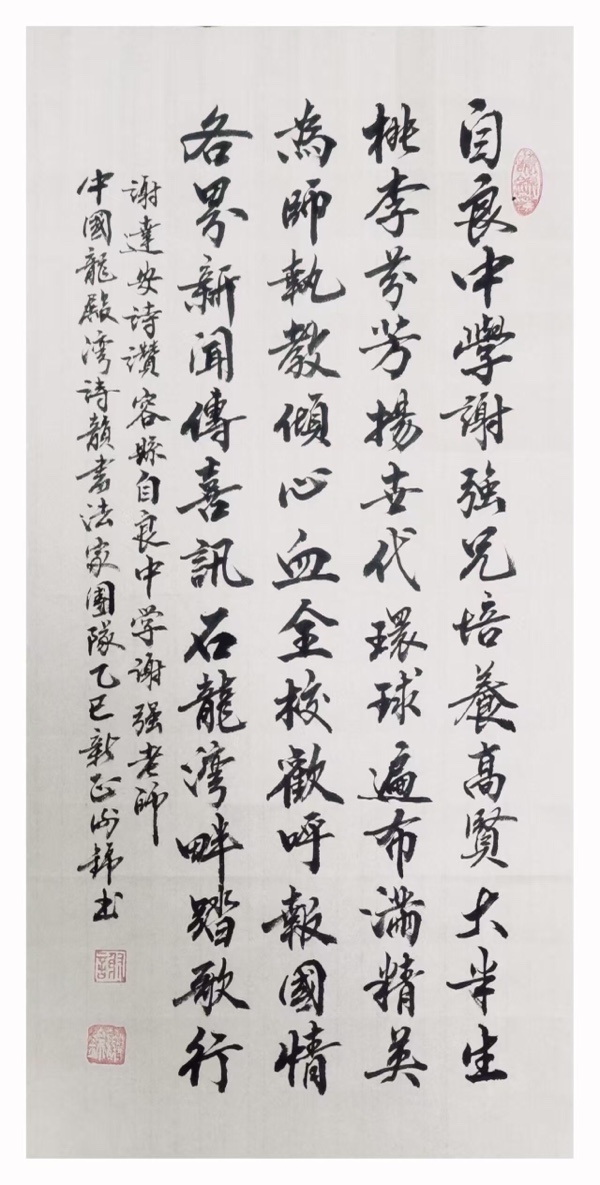 自良中學謝強兄培養高賢大半生
桃李芬芳揚世代環球遍布滿精英
為師執教傾心血全校歡呼報國情
各界新聞傳喜訊石龍灣畔踏歌行
謝達安詩讚容縣自良中学謝强老師
中國龍殿湾詩韻書法家團隊乙巳新正書
謝